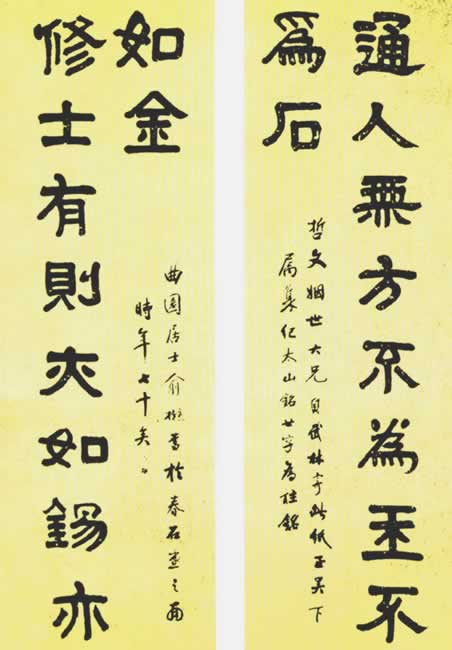 通人無方不為玉不
爲石
哲文姻世大兄自武林寄此紙至吳下
屬集紀太山銘廿字為楹銘
修士有則亦如錫亦
如金
曲園居士俞樾書於春在堂之
時年七十矣